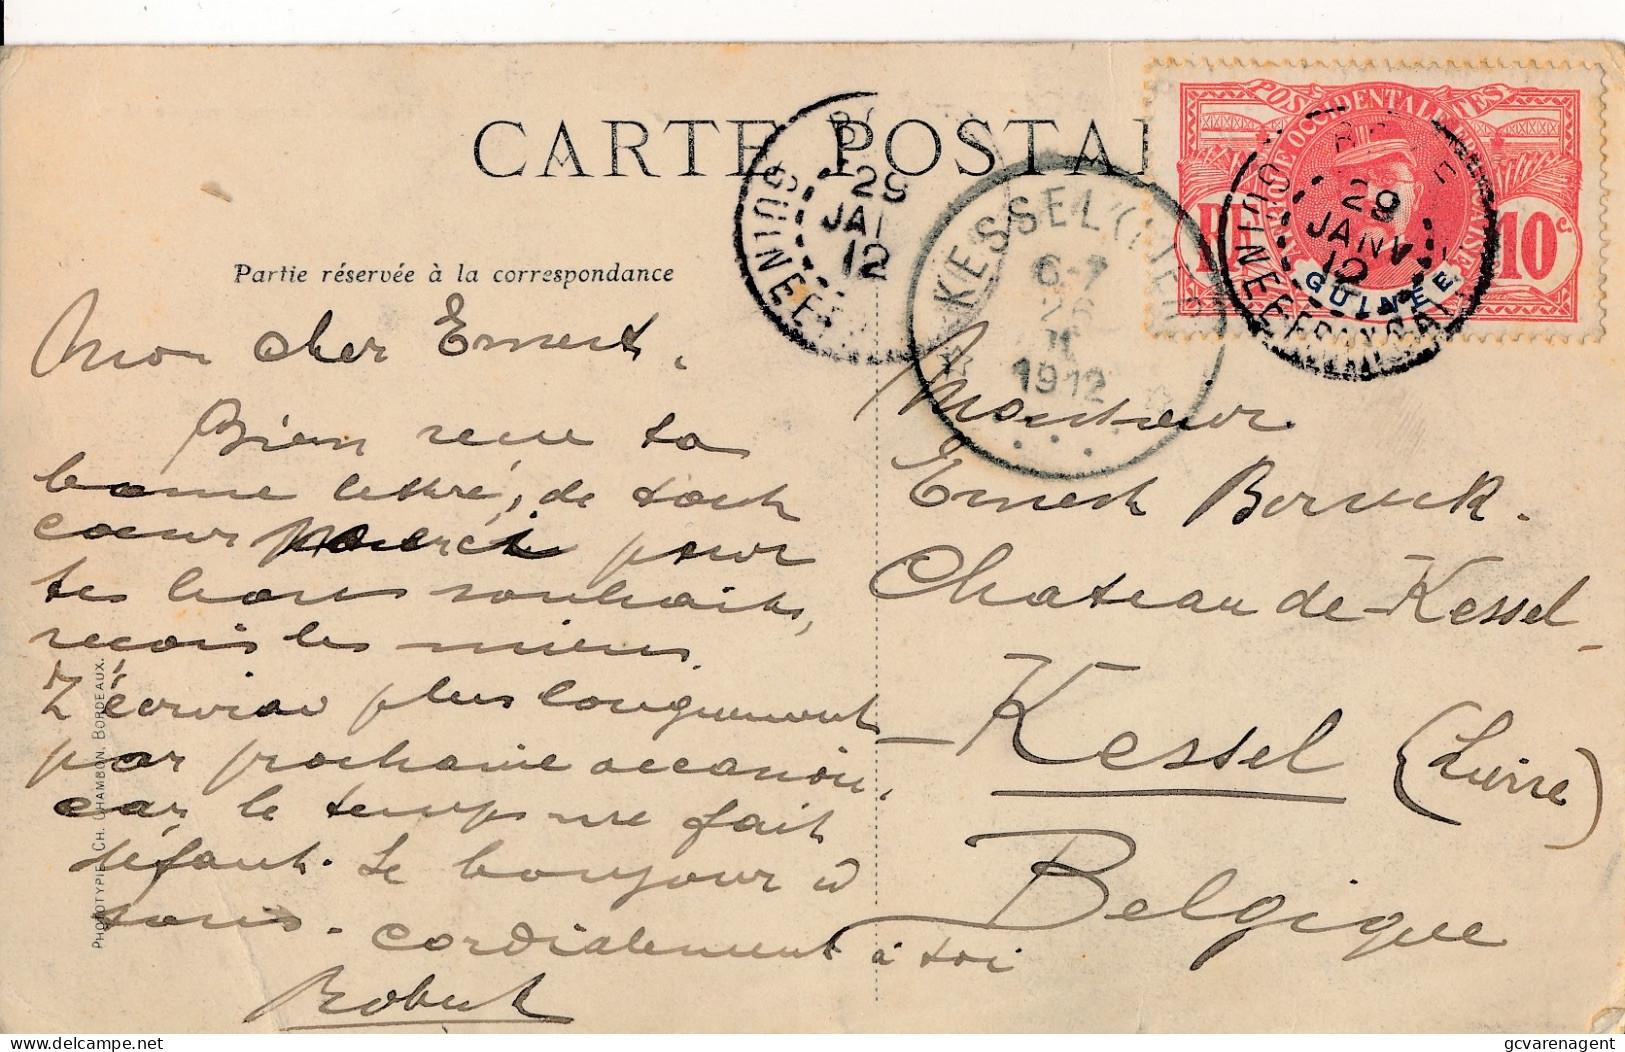 CARTE POSTAL
Partie réservée à la correspondance
POSTES
AFRIQUE OCCIDENTALE FRANÇAISE
RF
10c
GUINÉE
GUINEE FRANCAI
29
JANV
12
GUINEE
29
JAN
12
KESSEL (LIER)
6-7
26
II
1912
Mon cher Ernest.
Bien reçu ta
bonne lettre, de tout
cœur merci pour
tes bons souhaits,
reçois les miens.
T'écrirai plus longuement
par prochaine occasion,
car le temps me fait
défaut. Le bonjour à
tous. Cordialement à toi
Robert
Monsieur
Ernest
Chateau de Kessel
Kessel (Lierre)
Belgique
PHOTOTYPIE CH. CHAMBON. BORDEAUX.
delcampe.net
gcvarenagent